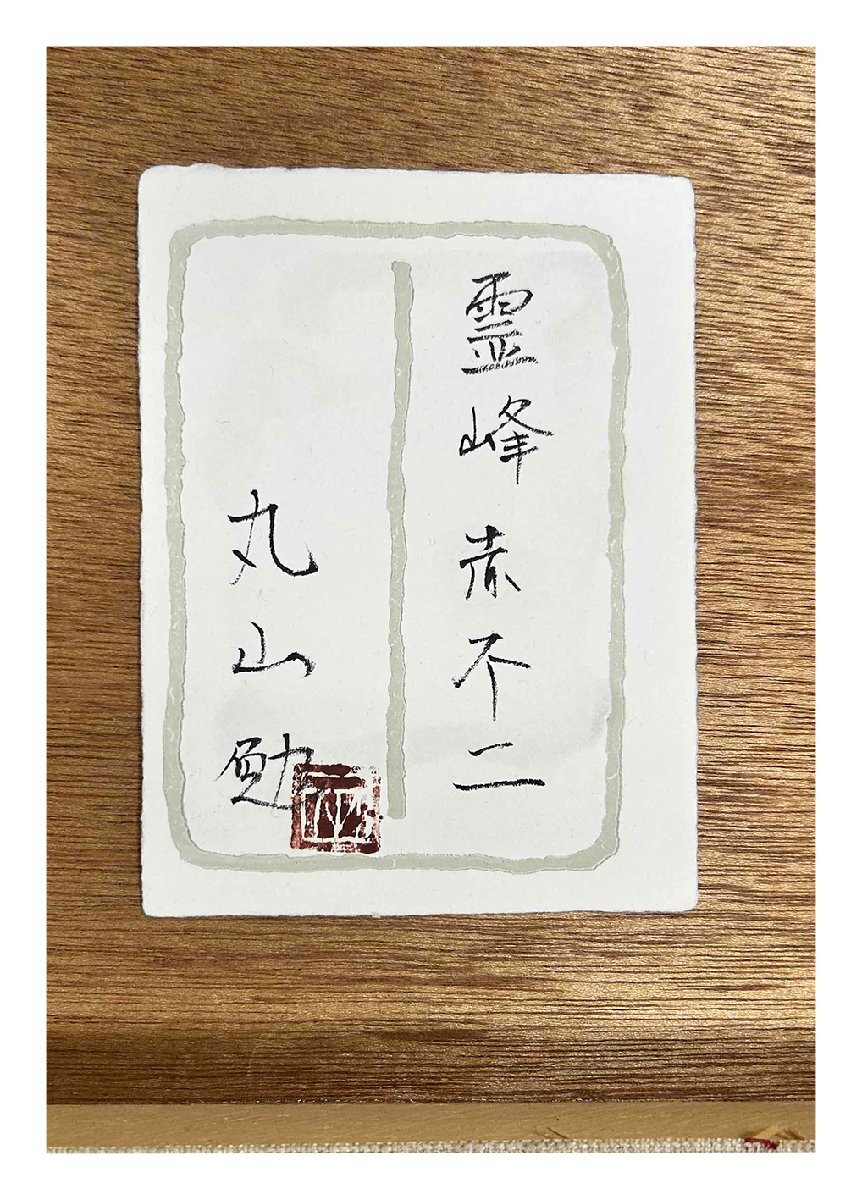 霊峰赤不二
丸山勉